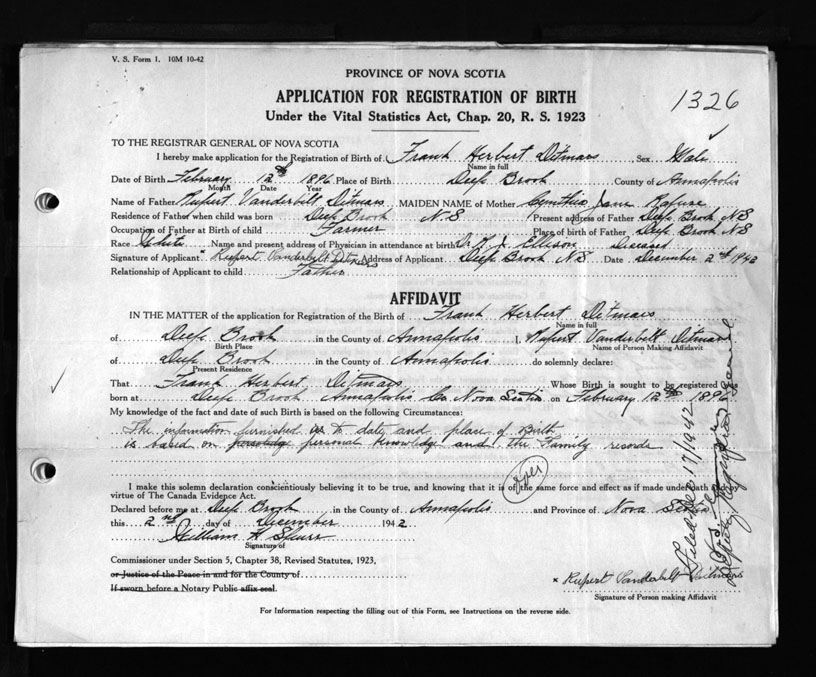 V. S. Form 1. 10M 10-42
PROVINCE OF NOVA SCOTIA
APPLICATION FOR REGISTRATION OF BIRTH
1326
Under the Vital Statistics Act, Chap. 20, R. S. 1923
TO THE REGISTRAR GENERAL OF NOVA SCOTIA
I hereby make application for the Registration of Birth of Frank Herbert Ditmars Sex Male
Name in full
Date of Birth February 12th 1896 Place of Birth Deep Brook County of Annapolis
Month Date Year
Name of Father Rupert Vanderbilt Ditmars MAIDEN NAME of Mother Cynthia Jane Rafuse
Residence of Father when child was born Deep Brook N.S Present address of Father Deep Brook N.S
Occupation of Father at Birth of child Farmer Place of birth of Father Deep Brook N.S
Race White Name and present address of Physician in attendance at birth Dr. Ellison Deceased
Signature of Applicant Rupert Vanderbilt Ditmars Address of Applicant Deep Brook N.S Date December 2nd 1942
Relationship of Applicant to child Father
AFFIDAVIT
IN THE MATTER of the application for Registration of the Birth of Frank Herbert Ditmars
Name in full
of Deep Brook in the County of Annapolis I, Rupert Vanderbilt Ditmars
Birth Place Name of Person Making Affidavit
of Deep Brook in the County of Annapolis do solemnly declare:
Present Residence
That Frank Herbert Ditmars Whose Birth is sought to be registered was
born at Deep Brook Annapolis Co. Nova Scotia on February 12th 1896
My knowledge of the fact and date of such Birth is based on the following Circumstances:
The information furnished as to date and place of Birth
is based on personal knowledge and the Family records
I make this solemn declaration conscientiously believing it to be true, and knowing that it is of the same force and effect as if made under oath and by
virtue of The Canada Evidence Act.
Declared before me at Deep Brook in the County of Annapolis and Province of Nova Scotia
this 2nd day of December 1942
William H Spurr
Signature of
Commissioner under Section 5, Chapter 38, Revised Statutes, 1923,
or Justice of the Peace in and for the County of
If sworn before a Notary Public affix seal.
x Rupert Vanderbilt Ditmars
Signature of Person making Affidavit
For Information respecting the filling out of this Form, see Instructions on the reverse side.
Filed Dec 17/1942
Deputy Registrar General